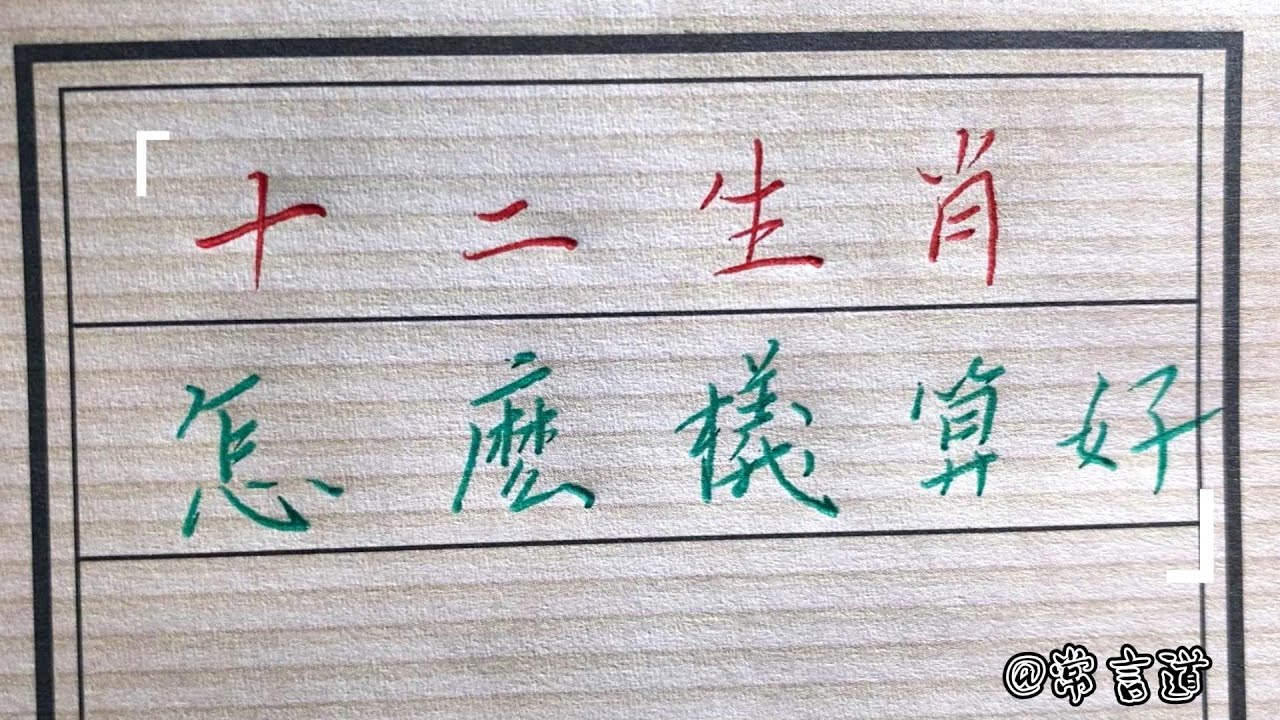 十二生肖
怎麼樣算好
@常言道